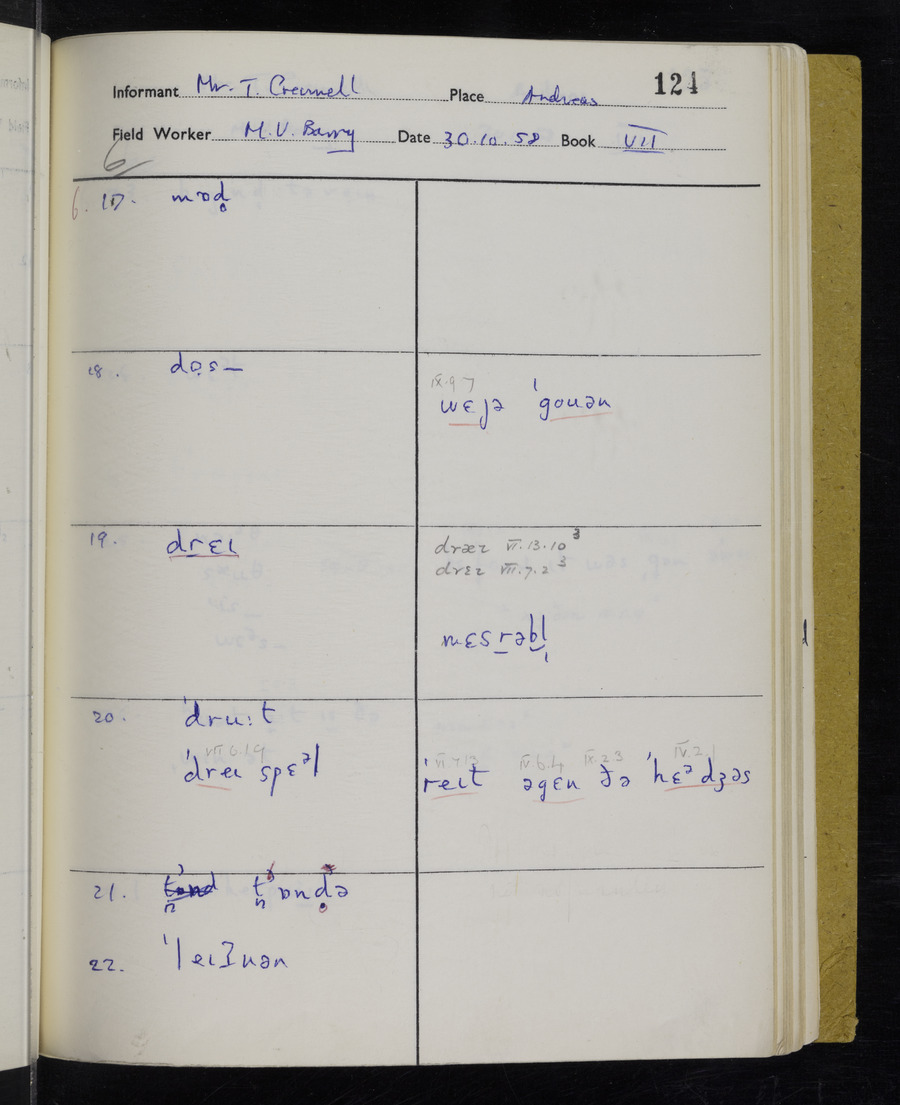 Informant Mr. T. Crennell Place Andreas 124
Field Worker M. V. Barry Date 30.10.58 Book VII
6
6. 17. mɒd̥
18. dọs—
IX.9.7
wɛjə ˈgouən
19. drɛɩ
dræɪ VI.13.10³
drɛɪ VII.7.2³
mɛsrəbl̩
20. ˈdruːt
VII.6.19
ˈdreɩ spɛᵊl
VI.7.13 IV.6.4 IX.2.3 IV.2.1
ˈreɩt əgɛn ðə ˈhɛᵊdʒəs
21. t̪ʾɒnd̥ə
22. ˈleɩʔnən